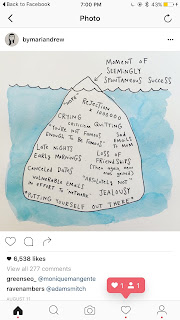 Back to Facebook
7:00 PM
Photo
bymariandrew
MOMENT OF
SEEMINGLY
SPONTANEOUS SUCCESS
REJECTION
CRYING
1000000
CRITICISM
QUITTING
"YOU'RE NOT FAMOUS
ENOUGH TO BE FAMOUS"
SOB
EMAILS
TO MOM
LATE NIGHTS
EARLY MORNINGS
LOSS OF
FRIENDSHIPS
CANCELED DATES
"ABSOLUTELY NOT"
VULNERABLE EMAILS
IN EFFORT TO NETWORK
JEALOUSY
"PUTTING YOURSELF OUT THERE"
6,538 likes
View all 277 comments
greenseo_ @moniquemangente
ravenambers @adamsmitch
AUGUST 11
1
1